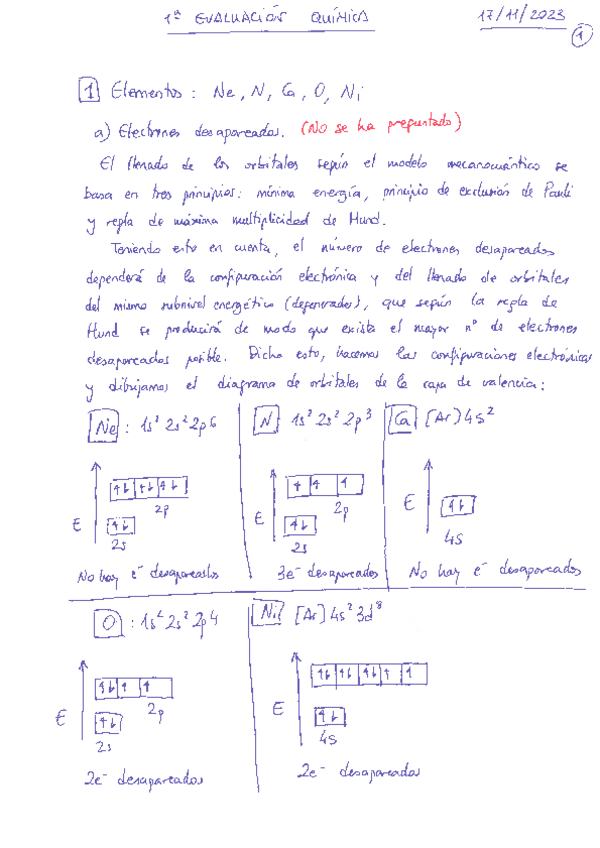 1ª EVALUACIÓN QUÍMICA 17/11/2023
1
1 Elementos: Ne, N, Ca, O, Ni
a) Electrones desapareados. (No se ha preguntado)
El llenado de los orbitales según el modelo mecanocuántico se
basa en tres principios: mínima energía, principio de exclusión de Pauli
y regla de máxima multiplicidad de Hund.
Teniendo esto en cuenta, el número de electrones desapareados
dependerá de la configuración electrónica y del llenado de orbitales
del mismo subnivel energético (degenerados), que según la regla de
Hund se producirá de modo que exista el mayor nº de electrones
desapareados posible. Dicho esto, hacemos las configuraciones electrónicas
y dibujamos el diagrama de orbitales de la capa de valencia:
Ne : 1s² 2s² 2p6
E
2p
2s
No hay e⁻ desapareados
N 1s² 2s² 2p³
E
2p
2s
3e⁻ desapareados
Ca [Ar] 4s²
E
4s
No hay e⁻ desapareados
O : 1s² 2s² 2p4
E
2p
2s
2e⁻ desapareados
Ni [Ar] 4s² 3d⁸
E
4s
2e⁻ desapareados